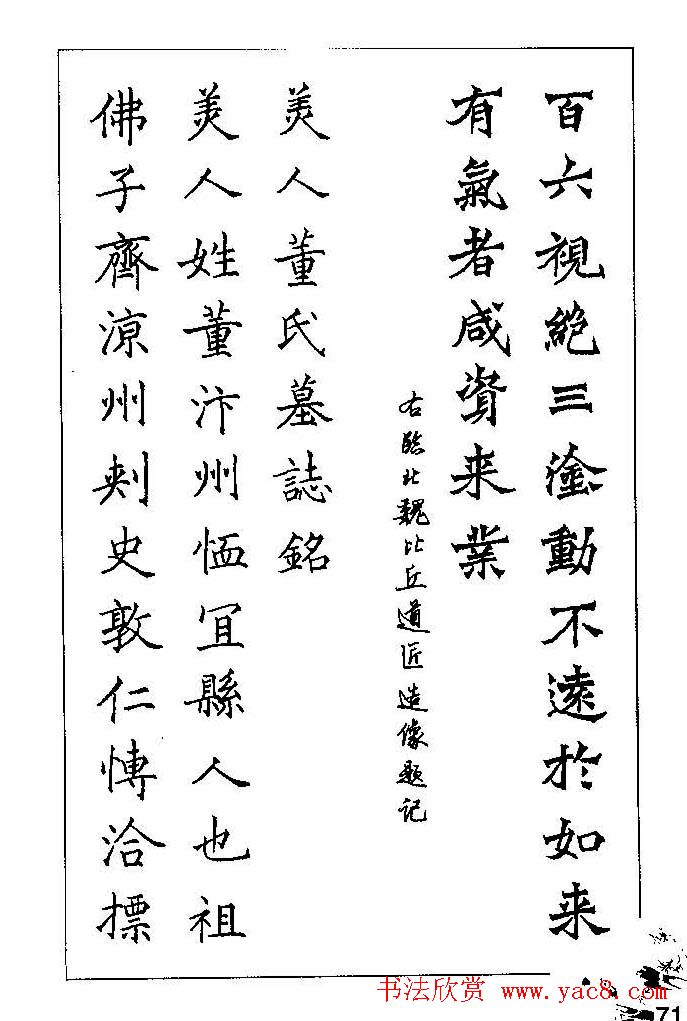 百六視絕三塗動不遠於如来
有氣者咸資来業
右臨北魏比丘道匠造像题记
美人董氏墓誌銘
美人姓董汴州恤冝縣人也祖
佛子齊涼州刺史敦仁愽洽摽
书法欣赏 www.yac8.com
71